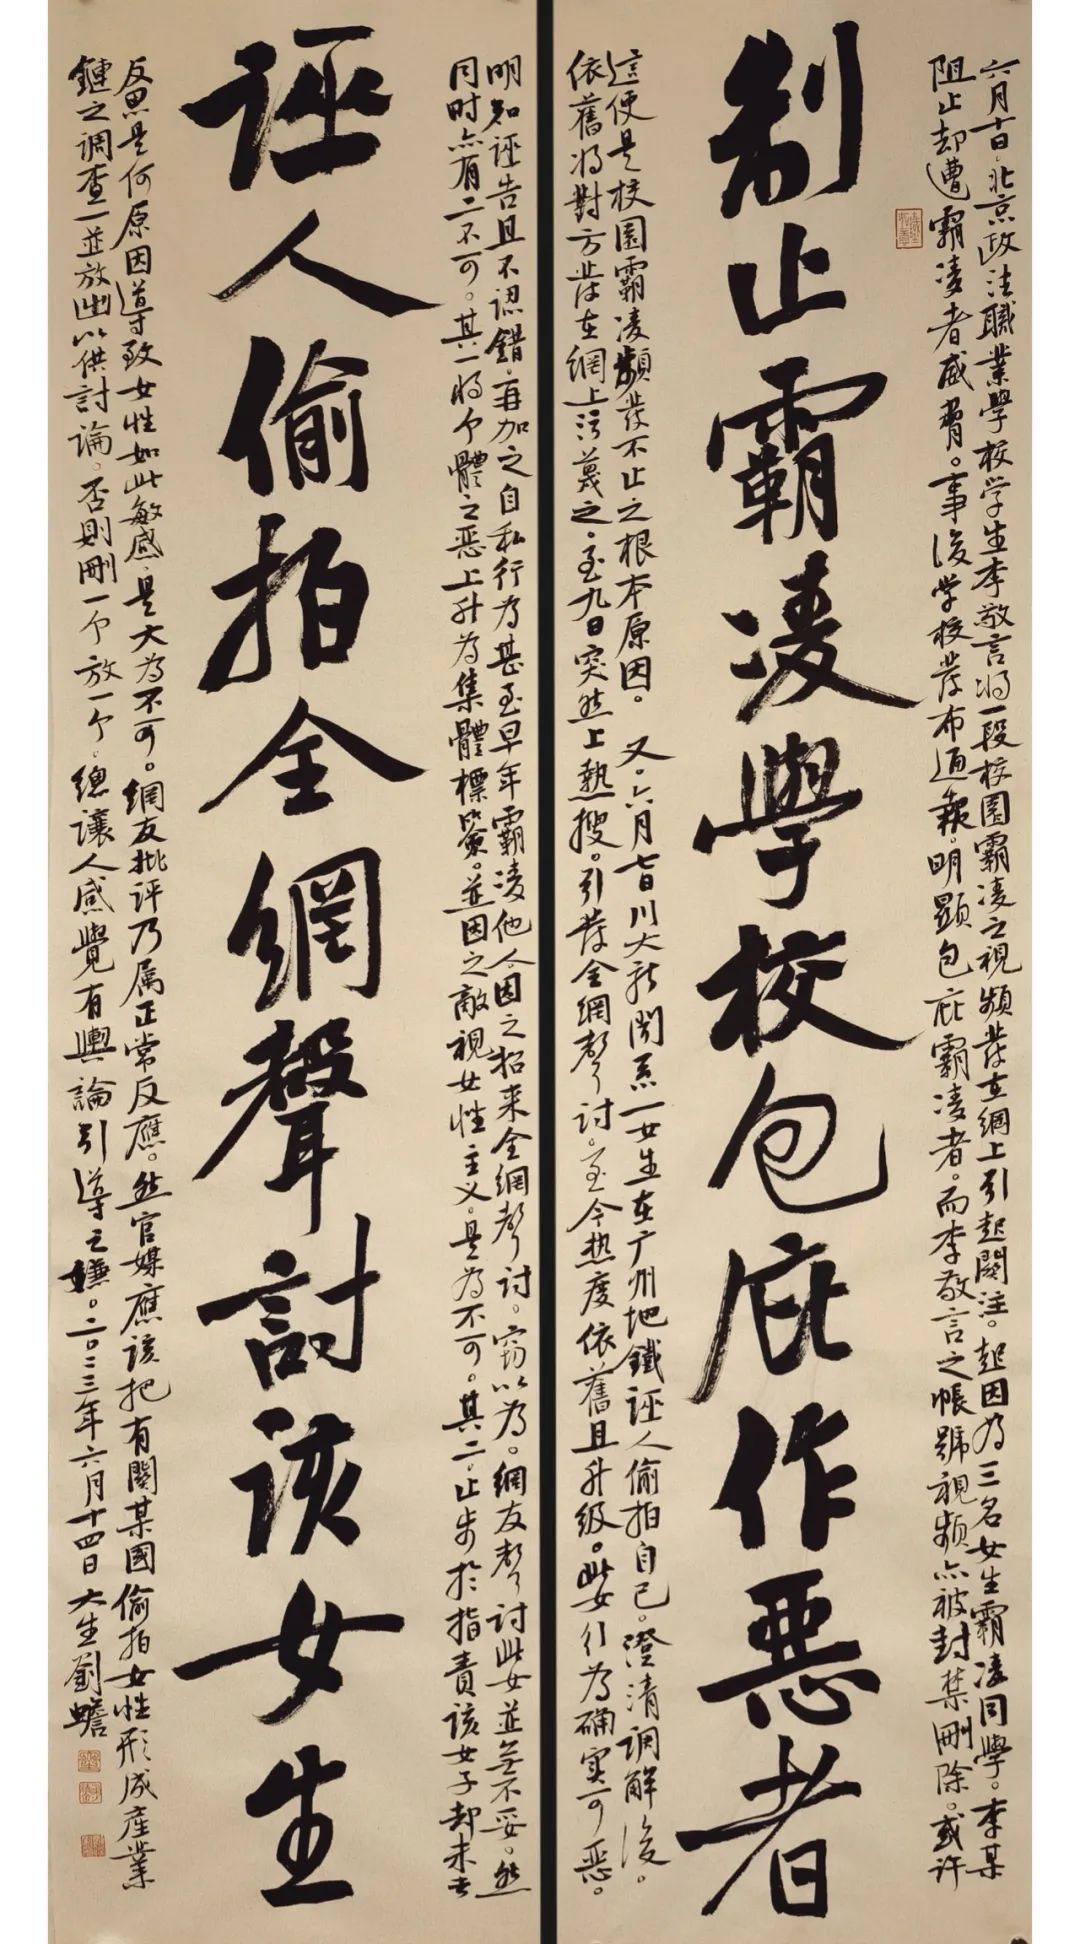 六月十日，北京政法職業學校学生李敬言将一段校園霸凌之視频發在網上引起関注。起因為三名女生霸凌同學。李某
阻止却遭霸凌者威脅。事後学校發布通報。明顯包庇霸凌者。而李敬言之帳號視频亦被封禁刪除。或许
制止霸凌學校包庇作惡者
這便是校園霸凌頻發不止之根本原因。　又，六月七日川大新聞系一女生在广州地鐵誣人偷拍自己。澄清調解後。
依舊将對方發在網上污蔑之，至九日突然上熱搜。引發全網聲討。至今热度依舊且升级。此女行為确实可惡。
明知誣告且不認錯，再加之自私行為甚至早年霸凌他人，因之招来全網聲讨。窃以為。網友聲讨此女並无不妥。然
同时亦有二不可。其一将个體之恶上升為集體標簽。並因之敵視女性主义。是為不可。其二，止步於指責該女子却未去
誣人偷拍全網聲討該女生
反思是何原因導致女性如此敏感，是大為不可。網友批评乃属正常反應。然官媒應该把有関某國偷拍女性形成產業
鏈之調查一並放出以供討論。否則刪一个放一个，總讓人感覺有輿論引導之嫌。二〇二三年六月十四日 大生劉蟾